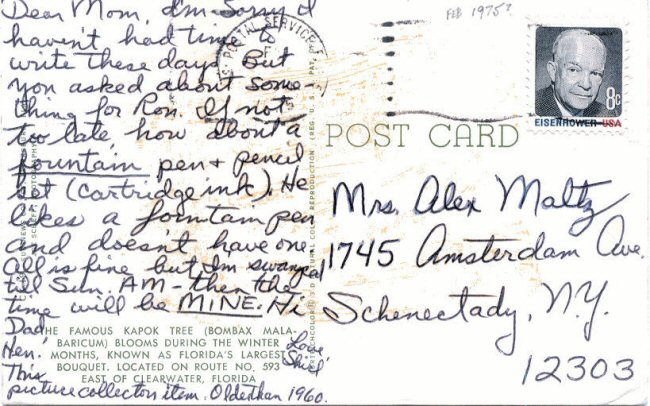 Dear Mom, I'm Sorry I
haven't had time to
write these days. But
you asked about some-
thing for Ron. If not
too late how about a
fountain pen + pencil
set (cartridge ink). He
likes a fountain pen
and doesn't have one.
All is fine but I'm swamped
till Sun. AM - then the
time will be MINE. Hi
Dad
Hen!
Love
This
picture collectors item. Older than 1960.
FEB 1975?
POSTAL SERVICE
8c
EISENHOWER·USA
POST CARD
Mrs. Alex Maltz
1745 Amsterdam Ave.
Schenectady, N.Y.
12303
THE FAMOUS KAPOK TREE (BOMBAX MALA-
BARICUM) BLOOMS DURING THE WINTER
MONTHS, KNOWN AS FLORIDA'S LARGEST
BOUQUET. LOCATED ON ROUTE NO. 593
EAST OF CLEARWATER, FLORIDA